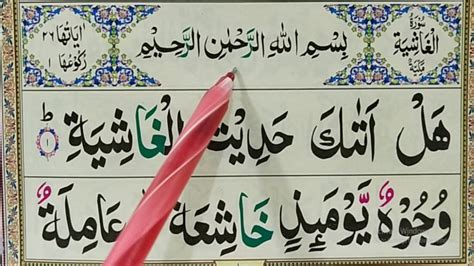 سُوْرَةُ الْغَاشِيَةِ مَكِّيَّةٌ
بِسْمِ اللّٰهِ الرَّحْمٰنِ الرَّحِيْمِ
اٰيَاتُهَا ٢٦ رُكُوْعُهَا ١
هَلْ اَتٰىكَ حَدِيْثُ الْغَاشِيَةِ ؕ ١
وُجُوْهٌ يَّوْمَئِذٍ خَاشِعَةٌ عَامِلَةٌ